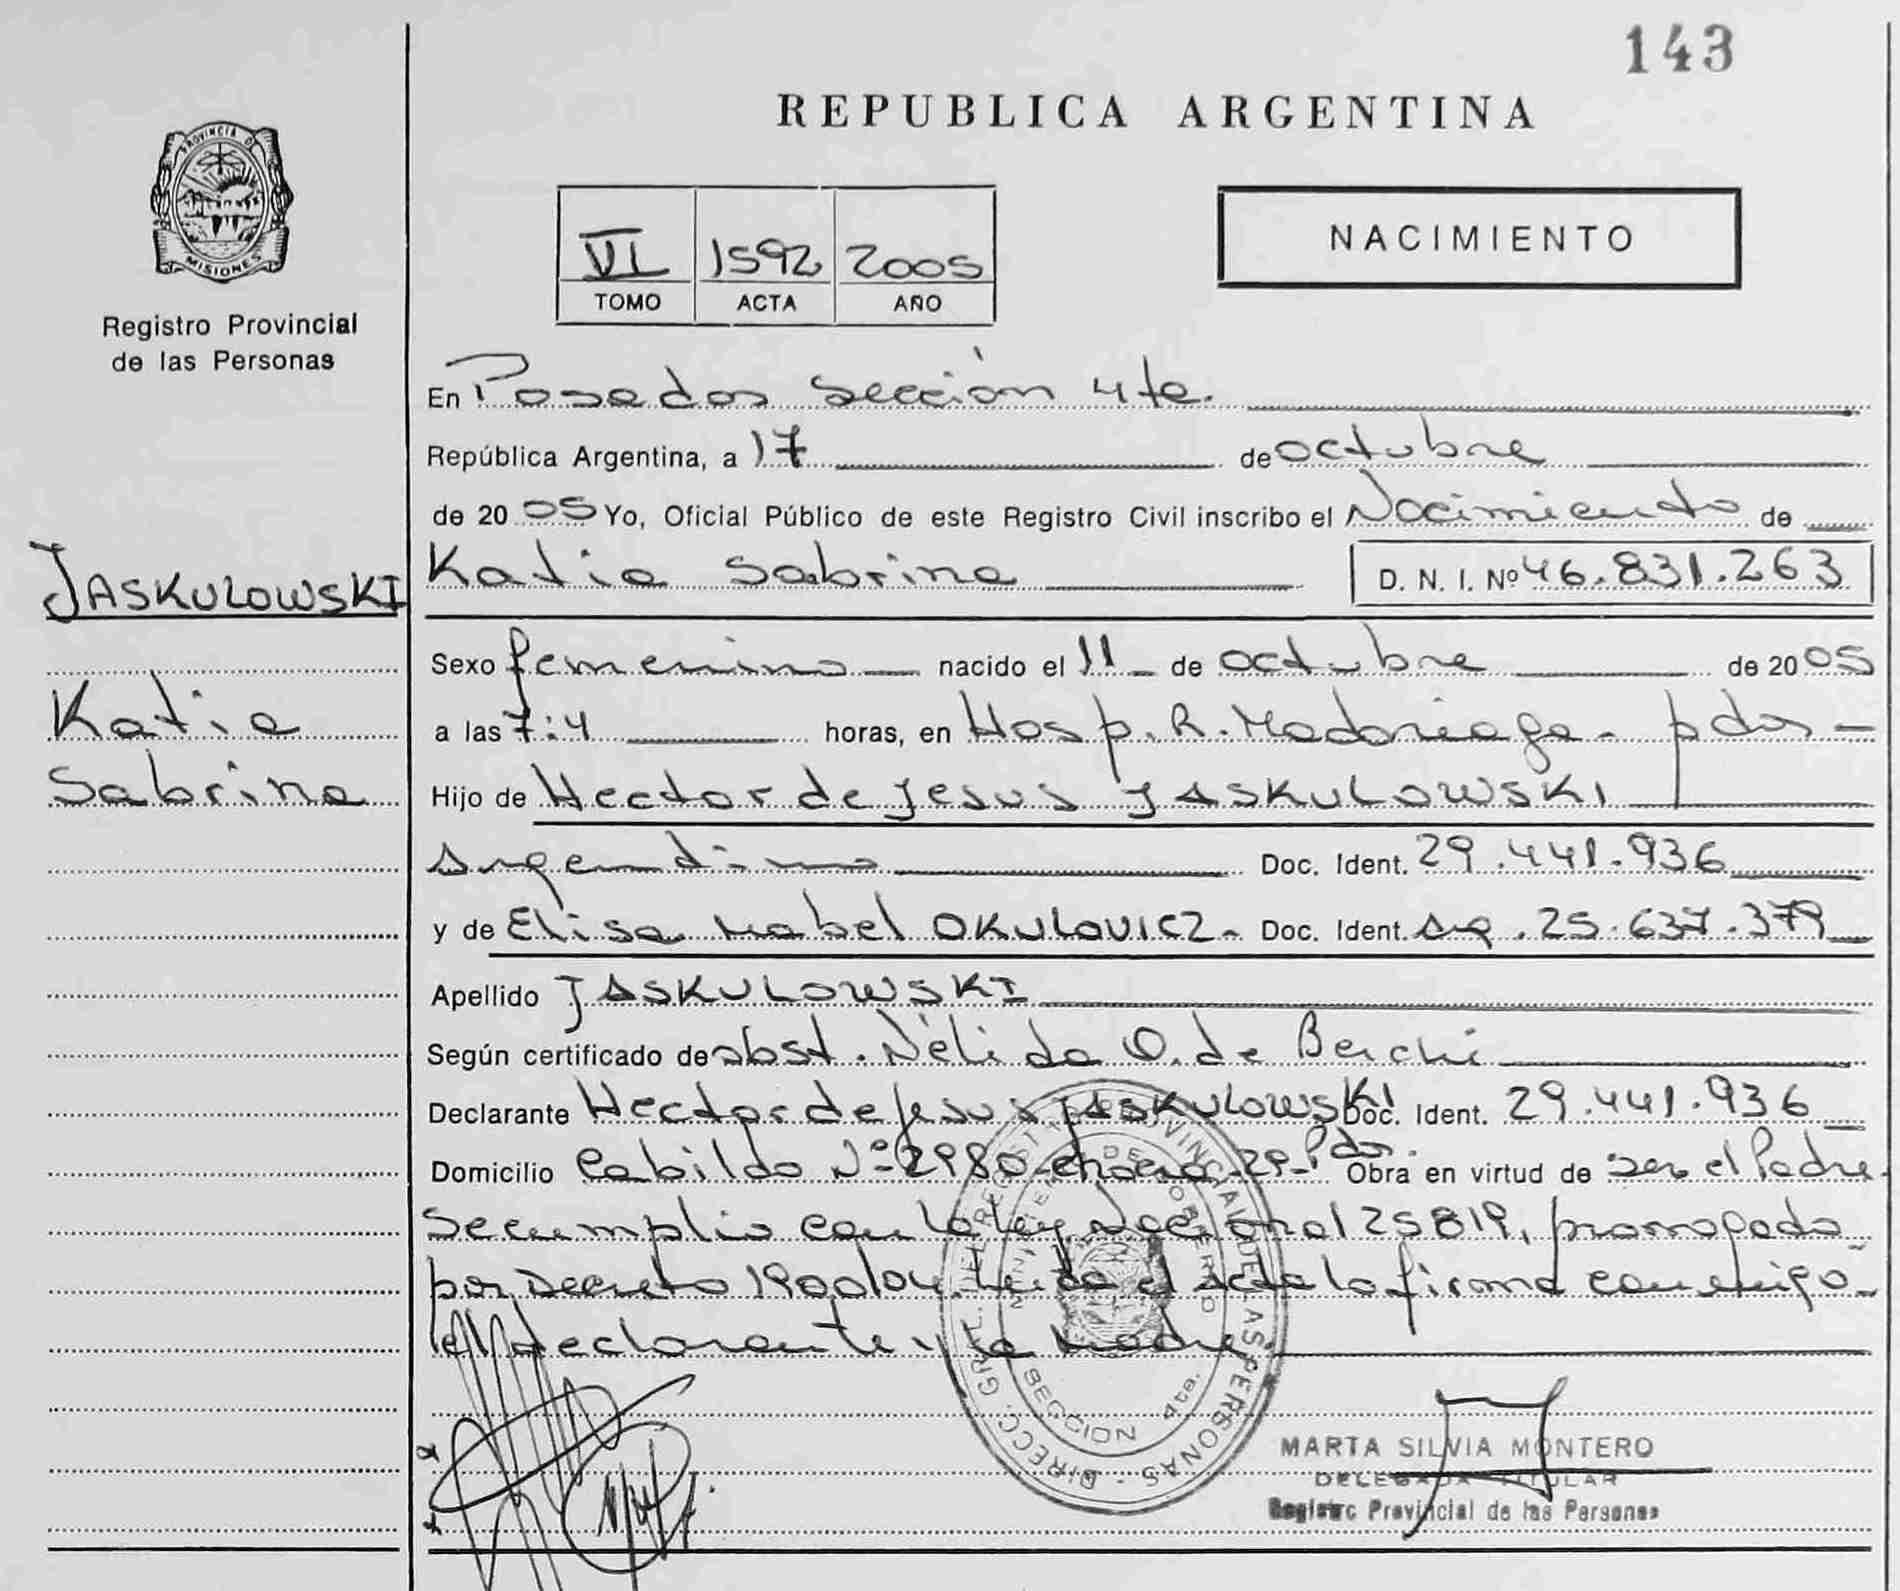 143
REPUBLICA ARGENTINA
PROVINCIA D
MISIONES
Registro Provincial
de las Personas
VI 1592 2005
TOMO ACTA AÑO
NACIMIENTO
En Posadas Sección 4ta.
República Argentina, a 17 de octubre
de 2005 Yo, Oficial Público de este Registro Civil inscribo el Nacimiento de
JASKULOWSKI
Katia Sabrina D. N. I. Nº 46.831.263
Sexo femenino nacido el 11 de octubre de 2005
Katia
Sabrina
a las 7:4 horas, en Hosp. R. Madariaga - pdas -
Hijo de Hector de Jesus JASKULOWSKI
Argentino Doc. Ident. 29.441.936
y de Elisa Mabel OKULOVICZ - Doc. Ident. Arg. 25.637.379
Apellido JASKULOWSKI
Según certificado de obst. Nélida O. de Berchi
Declarante Hector de Jesus JASKULOWSKI Doc. Ident. 29.441.936
Domicilio Cabildo Nº 2980 - chacra - 29 - Pdas. Obra en virtud de ser el Padre.
Se cumplio con la ley Nacional 25819, prorrogada
por Decreto 1900/04. Leída el acta la firma conmigo
el declarante y la Madre.
DIRECC. GRAL. DEL REGISTRO PROVINCIAL DE LAS PERSONAS
SECCION 4ta.
MARTA SILVIA MONTERO
DELEGADA TITULAR
Registro Provincial de las Personas